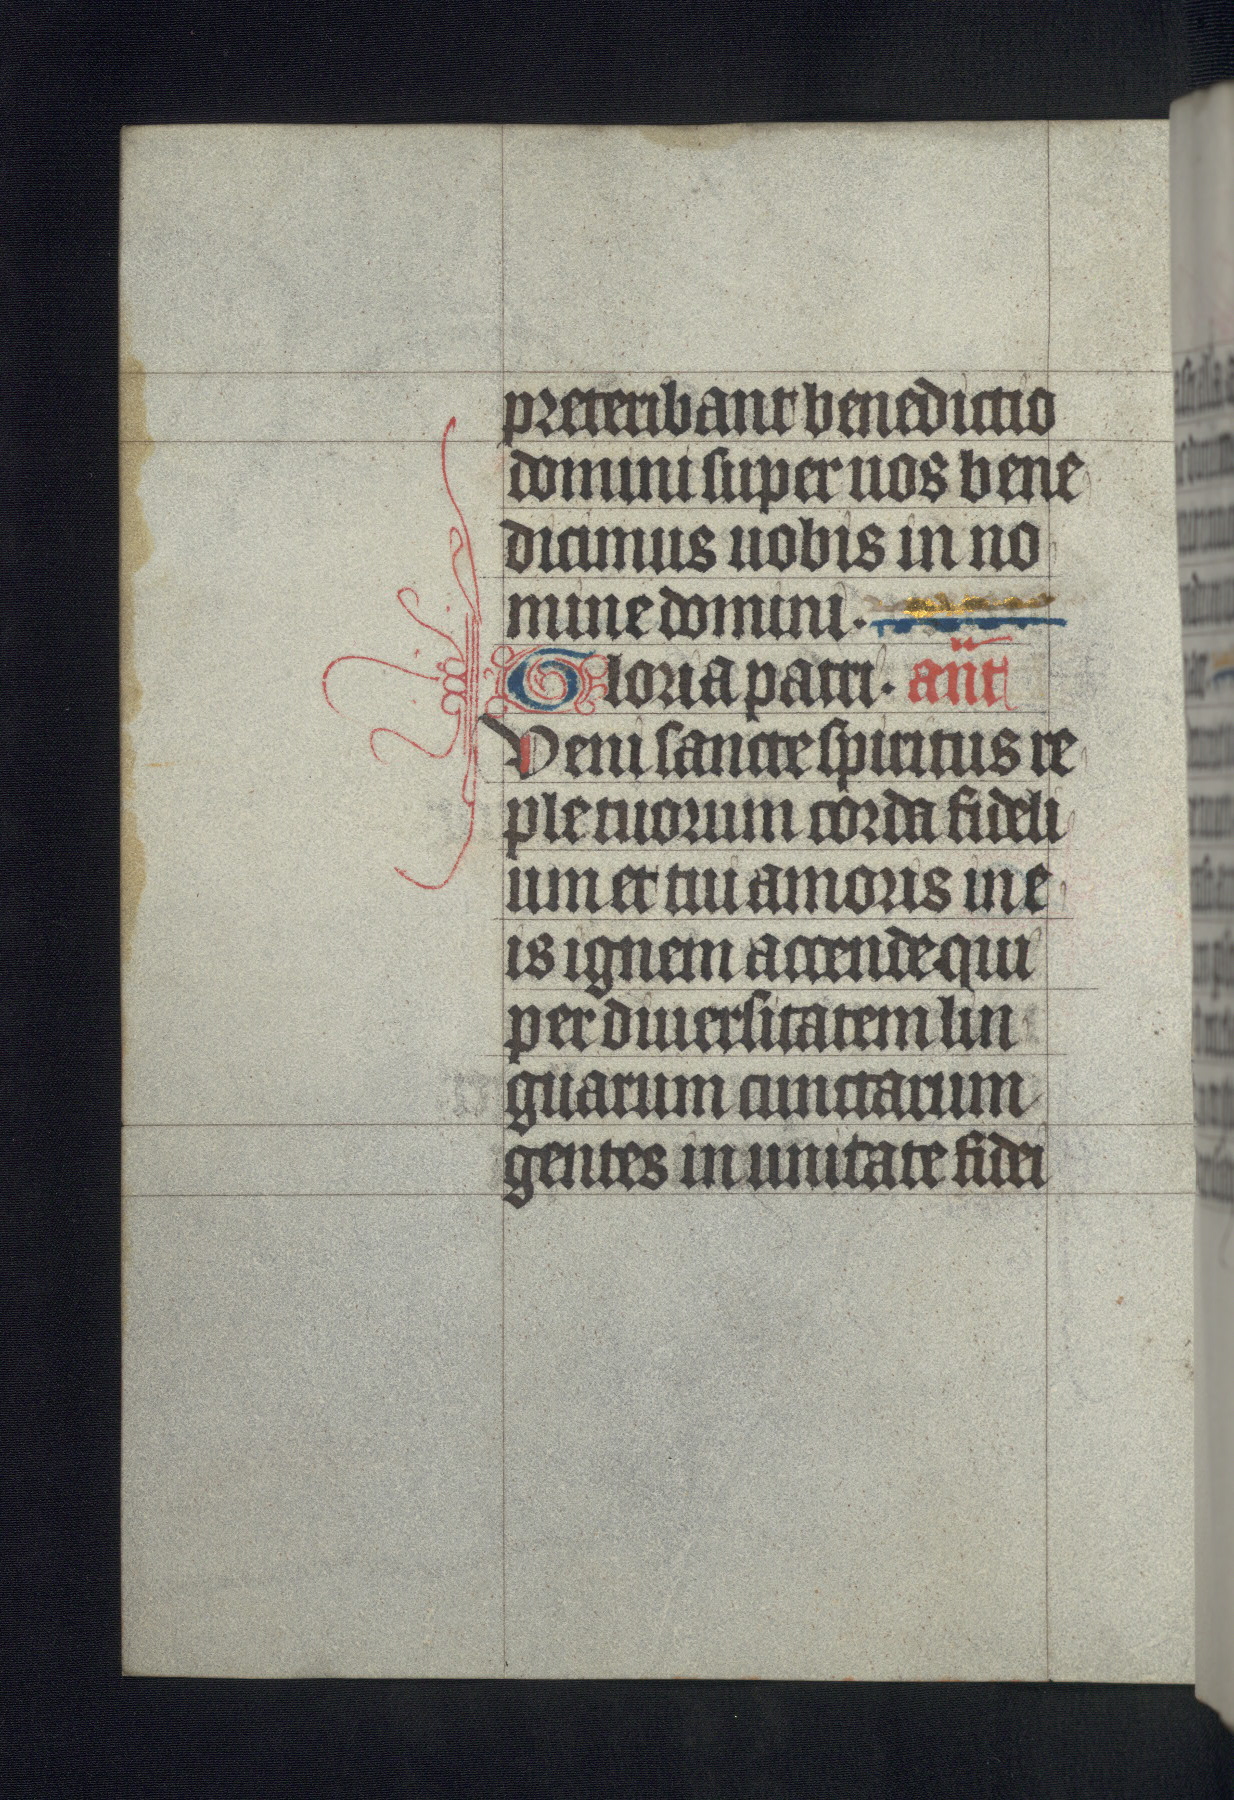 preteribant benedictio
domini super uos bene
dicimus uobis in no
mine domini.
Gloria patri. an̄t
Veni sancte spiritus re
ple tuorum corda fideli
um et tui amoris in e
is ignem accende qui
per diuersitatem lin
guarum cunctarum
gentes in unitate fidei